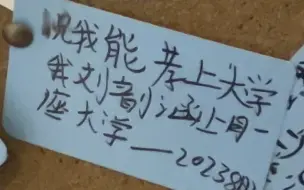 祝我能考上大学
我刘韵涵上同一
座大学—2023